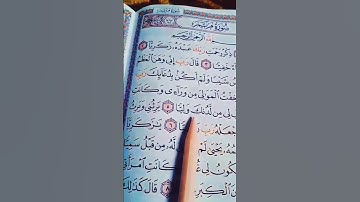 سُورَةُ مَرْيَمَ
سُورَةُ مَرْيَمَ
ٱلرَّحْمَٰنِ ٱلرَّحِيمِ
ذِكْرُ رَحْمَتِ رَبِّكَ عَبْدَهُۥ زَكَرِيَّآ
قَالَ رَبِّ إِنِّى وَهَنَ ٱلْعَظْمُ
شَيْبًا وَلَمْ أَكُنۢ بِدُعَآئِكَ رَبِّ
خِفْتُ ٱلْمَوَٰلِىَ مِن وَرَآءِى وَكَانَتِ
لِى مِن لَّدُنكَ وَلِيًّا ٥ يَرِثُنِى وَيَرِثُ
رَبِّ ٦ يَٰزَكَرِيَّآ
يَحْيَىٰ لَمْ لَّهُۥ مِن قَبْلُ سَمِيًّا
يَكُونُ لِى كَانَتِ
مِنَ ٱلْكِبَرِ ٨ قَالَ كَذَٰلِكَ